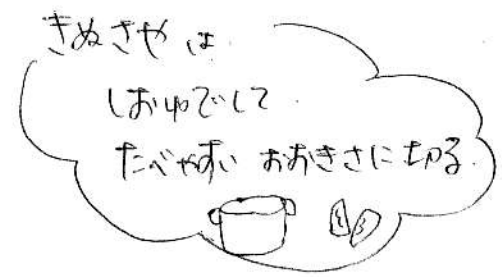 きぬさやは
しおゆでして
たべやすい おおきさに切る